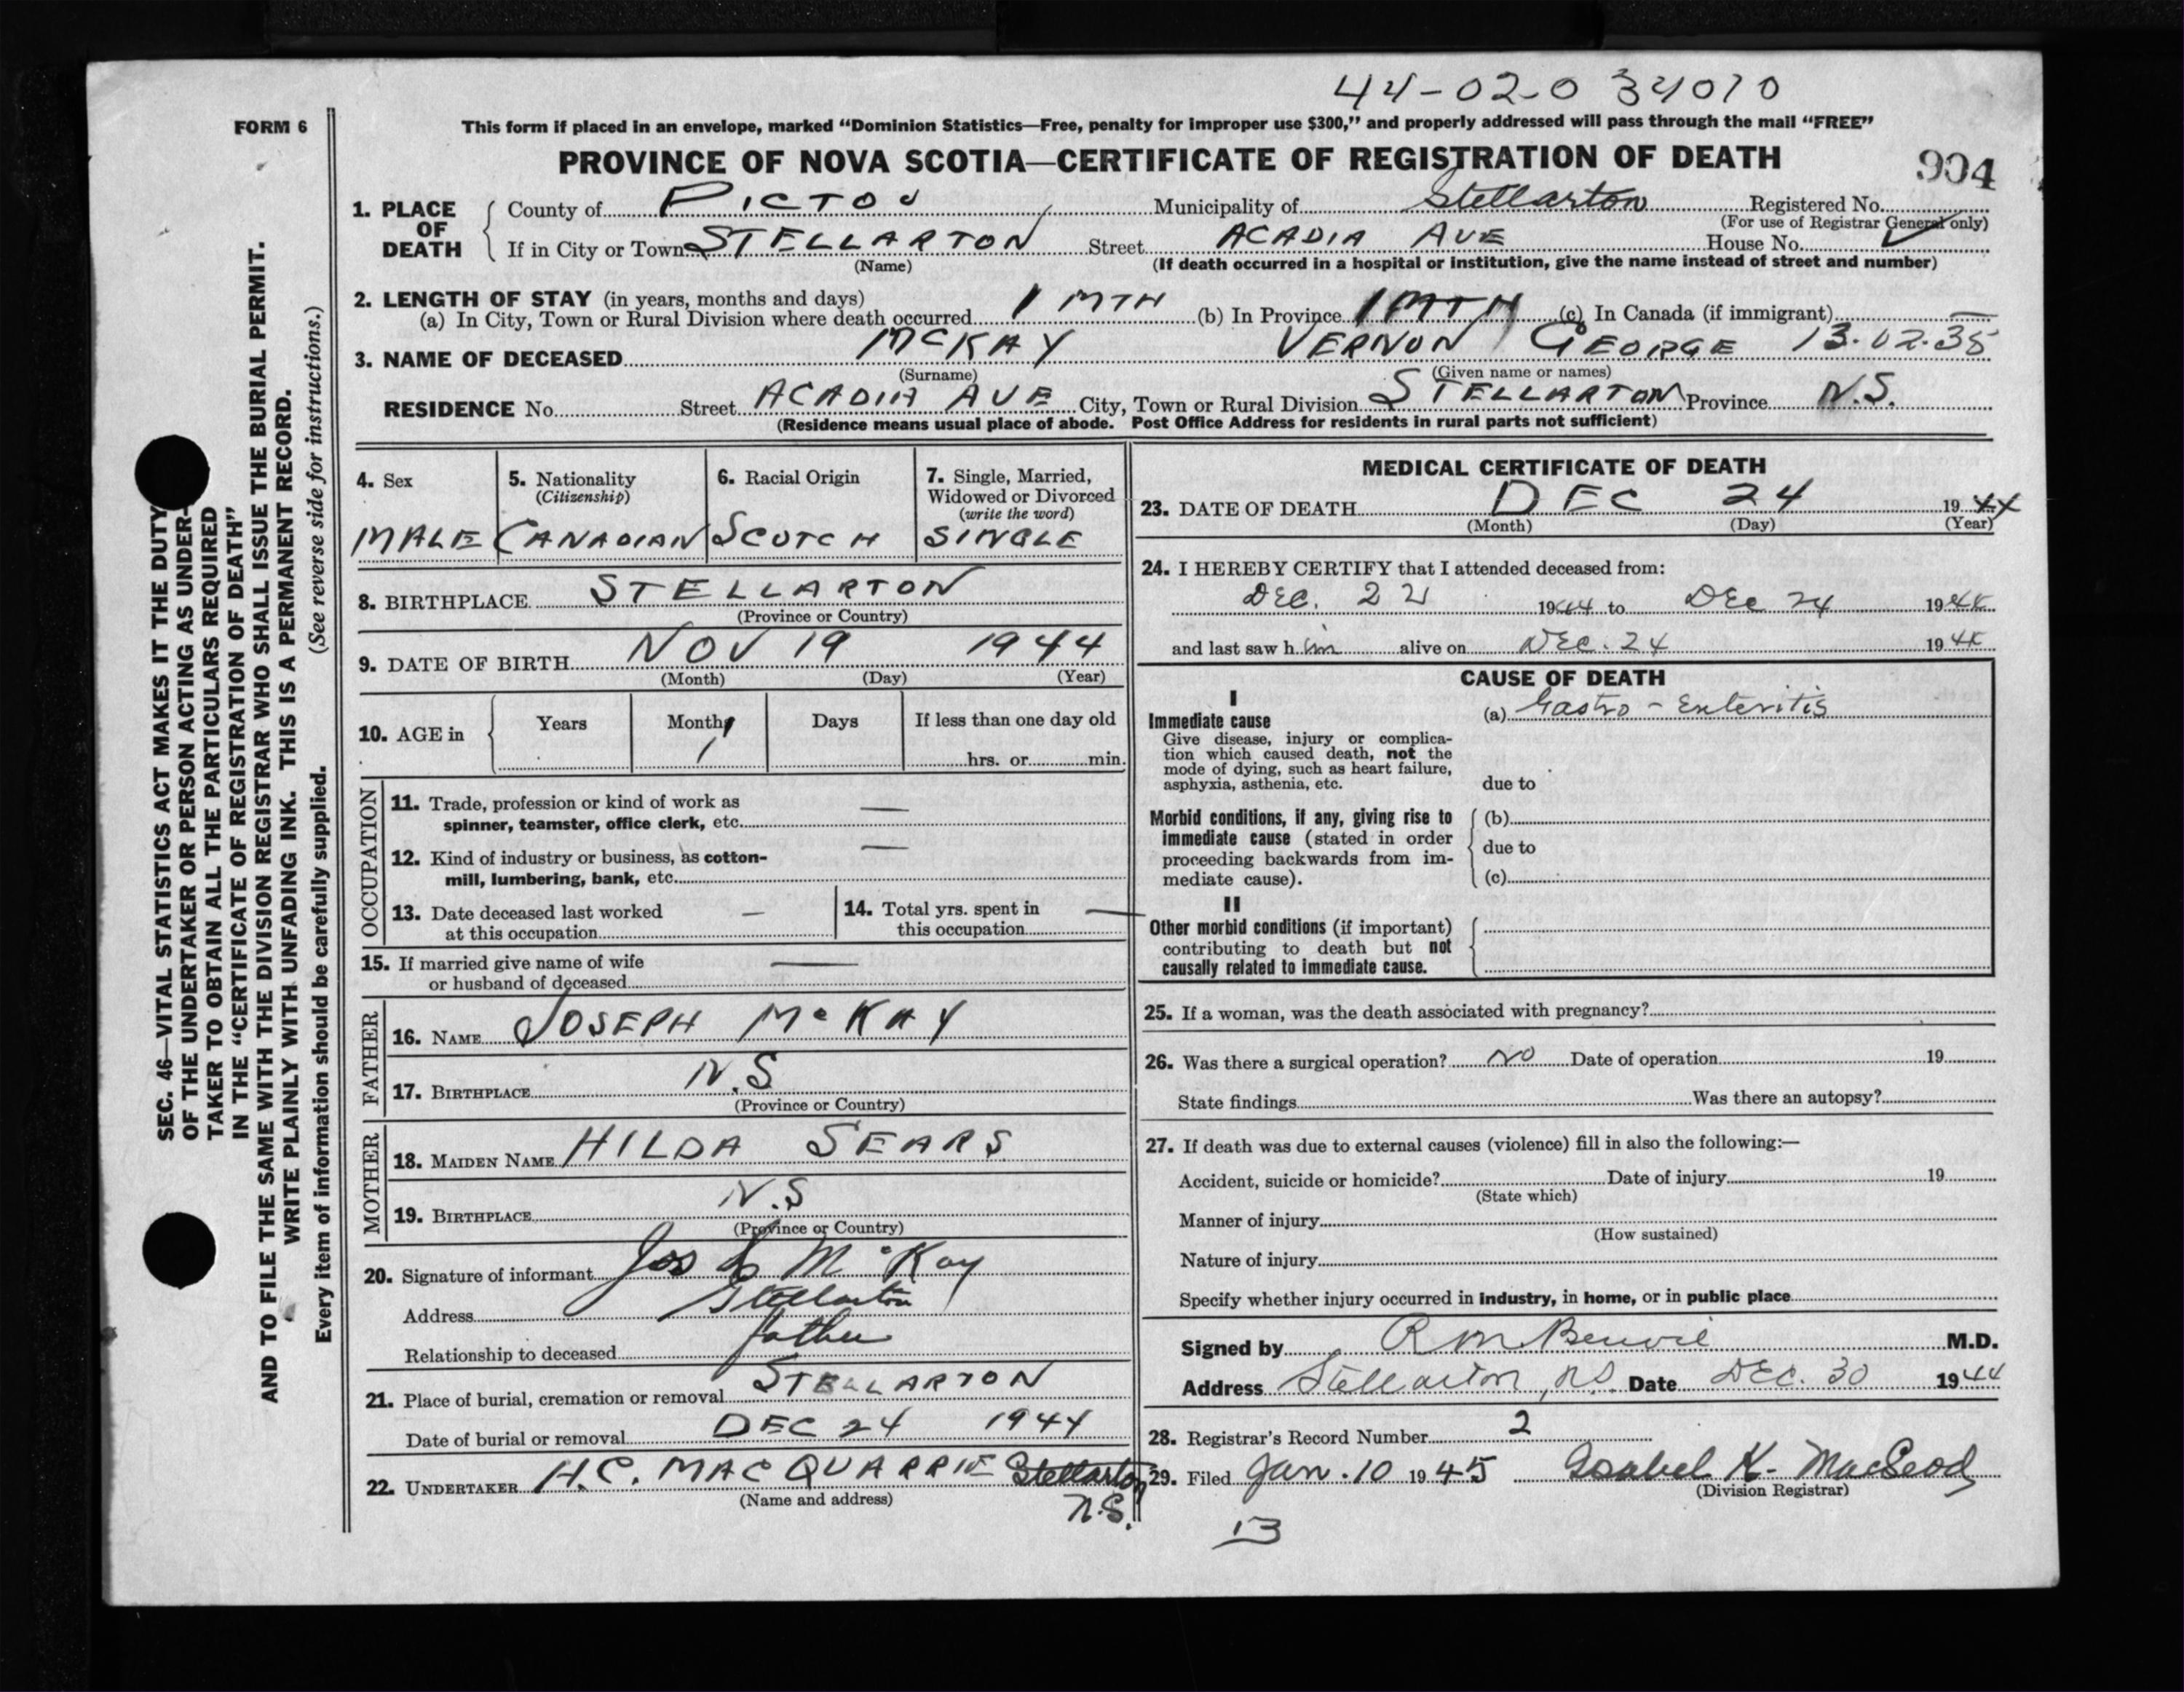 44-02-0 34010
FORM 6
This form if placed in an envelope, marked “Dominion Statistics—Free, penalty for improper use $300,” and properly addressed will pass through the mail “FREE”
PROVINCE OF NOVA SCOTIA—CERTIFICATE OF REGISTRATION OF DEATH
904
1. PLACE OF DEATH
County of PICTOU Municipality of Stellarton Registered No.
(For use of Registrar General only)
If in City or Town STELLARTON Street ACADIA AVE House No.
(Name) (If death occurred in a hospital or institution, give the name instead of street and number)
2. LENGTH OF STAY (in years, months and days)
(a) In City, Town or Rural Division where death occurred 1 MTH (b) In Province 1 MTH (c) In Canada (if immigrant) —
3. NAME OF DECEASED McKAY VERNON GEORGE 13.02.35
(Surname) (Given name or names)
RESIDENCE No. Street ACADIA AVE City, Town or Rural Division STELLARTON Province N.S.
(Residence means usual place of abode. Post Office Address for residents in rural parts not sufficient)
4. Sex 5. Nationality 6. Racial Origin 7. Single, Married,
(Citizenship) Widowed or Divorced
(write the word)
MALE CANADIAN SCOTCH SINGLE
8. BIRTHPLACE STELLARTON
(Province or Country)
9. DATE OF BIRTH NOV 19 1944
(Month) (Day) (Year)
10. AGE in Years Month Days If less than one day old
1 hrs. or min.
OCCUPATION
11. Trade, profession or kind of work as —
spinner, teamster, office clerk, etc.
12. Kind of industry or business, as cotton- —
mill, lumbering, bank, etc.
13. Date deceased last worked — 14. Total yrs. spent in —
at this occupation this occupation
15. If married give name of wife —
or husband of deceased
FATHER
16. NAME JOSEPH McKAY
17. BIRTHPLACE N.S
(Province or Country)
MOTHER
18. MAIDEN NAME HILDA SEARS
19. BIRTHPLACE N.S
(Province or Country)
20. Signature of informant Jos McKay
Address Stellarton
Relationship to deceased father
21. Place of burial, cremation or removal STELLARTON
Date of burial or removal DEC 24 1944
22. UNDERTAKER H.C. MACQUARRIE Stellarton
(Name and address) N.S.
MEDICAL CERTIFICATE OF DEATH
23. DATE OF DEATH DEC 24 1944
(Month) (Day) (Year)
24. I HEREBY CERTIFY that I attended deceased from:
DEC. 22 1944 to DEC 24 1944
and last saw him alive on DEC. 24 1944
CAUSE OF DEATH
I
Immediate cause (a) Gastro - Enteritis
Give disease, injury or complica-
tion which caused death, not the
mode of dying, such as heart failure,
asphyxia, asthenia, etc. due to
Morbid conditions, if any, giving rise to (b)
immediate cause (stated in order due to
proceeding backwards from im-
mediate cause). (c)
II
Other morbid conditions (if important)
contributing to death but not
causally related to immediate cause.
25. If a woman, was the death associated with pregnancy?
26. Was there a surgical operation? NO Date of operation 19
State findings Was there an autopsy?
27. If death was due to external causes (violence) fill in also the following:—
Accident, suicide or homicide? Date of injury 19
(State which)
Manner of injury
(How sustained)
Nature of injury
Specify whether injury occurred in industry, in home, or in public place
Signed by R M Benvie M.D.
Address Stellarton, N.S. Date DEC. 30 1944
28. Registrar's Record Number 2
29. Filed Jan. 10 1945 Isabel K. MacLeod
(Division Registrar)
13
SEC. 46—VITAL STATISTICS ACT MAKES IT THE DUTY
OF THE UNDERTAKER OR PERSON ACTING AS UNDER-
TAKER TO OBTAIN ALL THE PARTICULARS REQUIRED
IN THE “CERTIFICATE OF REGISTRATION OF DEATH”
AND TO FILE THE SAME WITH THE DIVISION REGISTRAR WHO SHALL ISSUE THE BURIAL PERMIT.
WRITE PLAINLY WITH UNFADING INK. THIS IS A PERMANENT RECORD.
Every item of information should be carefully supplied. (See reverse side for instructions.)